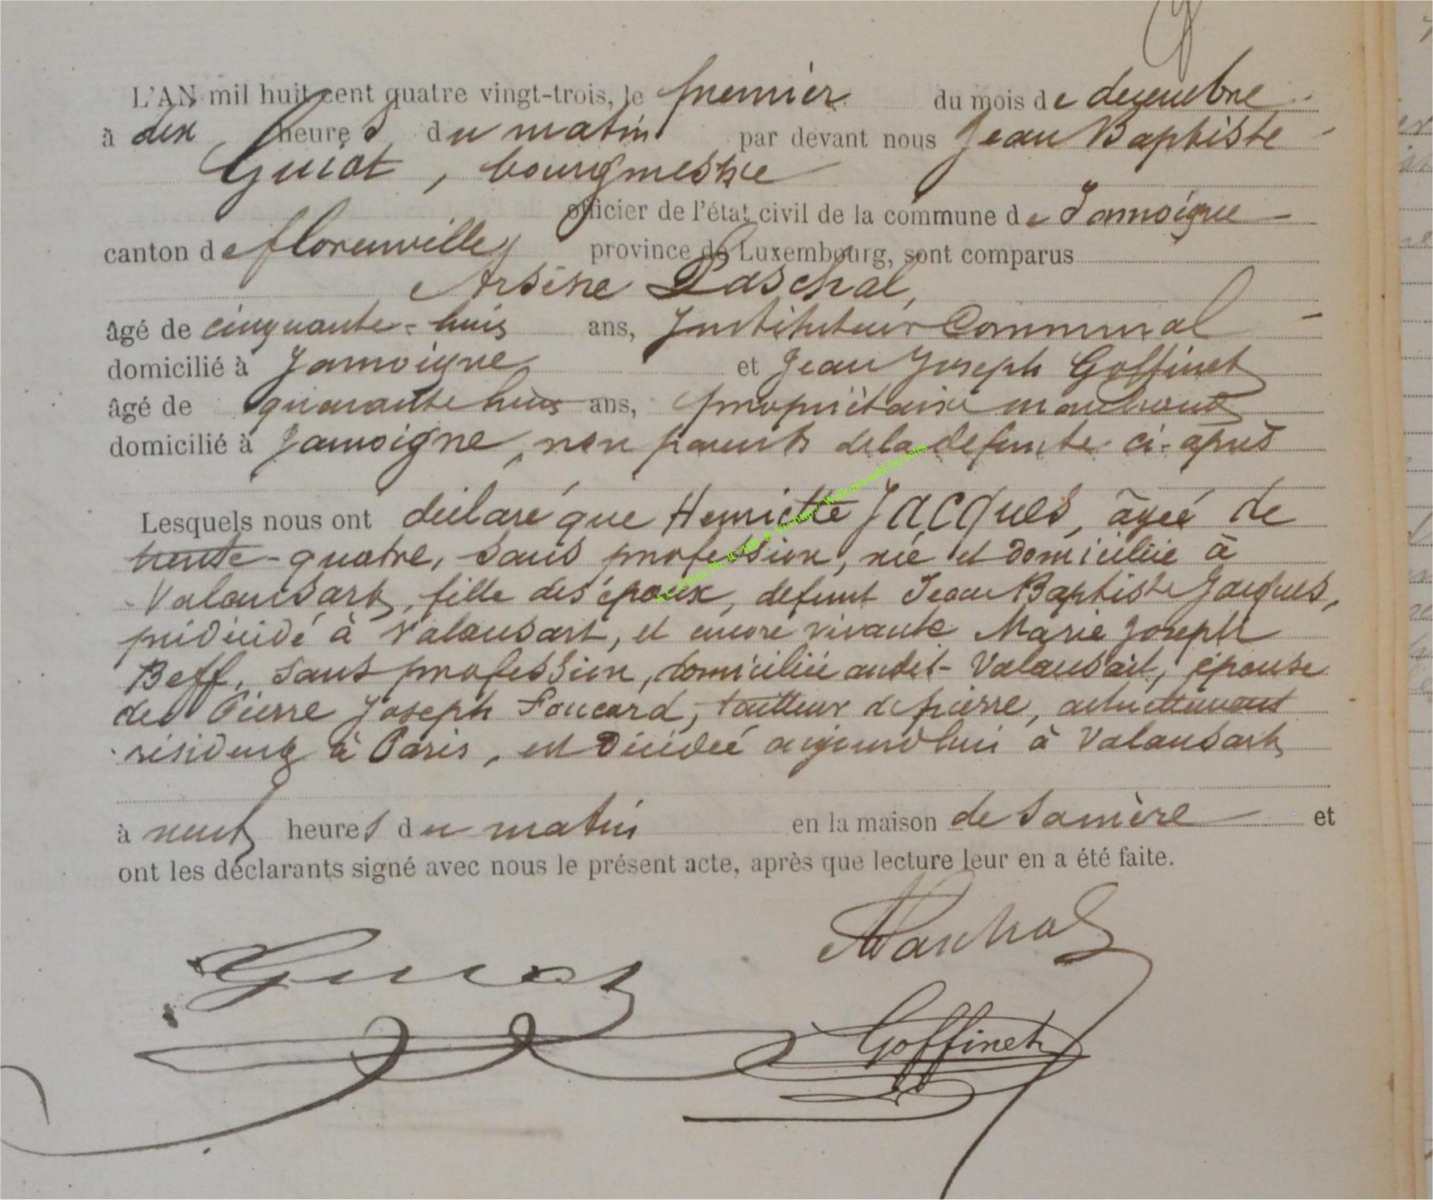 L'AN mil huit cent quatre vingt-trois, le premier du mois de decembre
à dix heures du matin par devant nous Jean Baptiste
Guiot, bourgmestre
officier de l'état civil de la commune de Jamoigne
canton de florenville province de Luxembourg, sont comparus
Arsène Paschal,
âgé de cinquante-huit ans, Instituteur Communal
domicilié à Jamoigne et Jean Joseph Goffinet
âgé de quarante huit ans, propriétaire marchand
domicilié à Jamoigne, non parents de la defunte ci-après
Lesquels nous ont déclaré que Henriette JACQUES, âgée de
trente-quatre, sans profession, née et domiciliée à
Valansart, fille des époux, defunt Jean Baptiste Jacques,
prédécédé à Valansart, et encore vivante Marie Joseph
Beff, sans profession, domiciliée audit-Valansart, épouse
de Pierre Joseph Foucard, tailleur de pierre, actuellement
résident à Paris, est décédée aujourd'hui à Valansart
à neuf heures du matin en la maison de sa mère et
ont les déclarants signé avec nous le présent acte, après que lecture leur en a été faite.
Paschal
Guiot
Goffinet